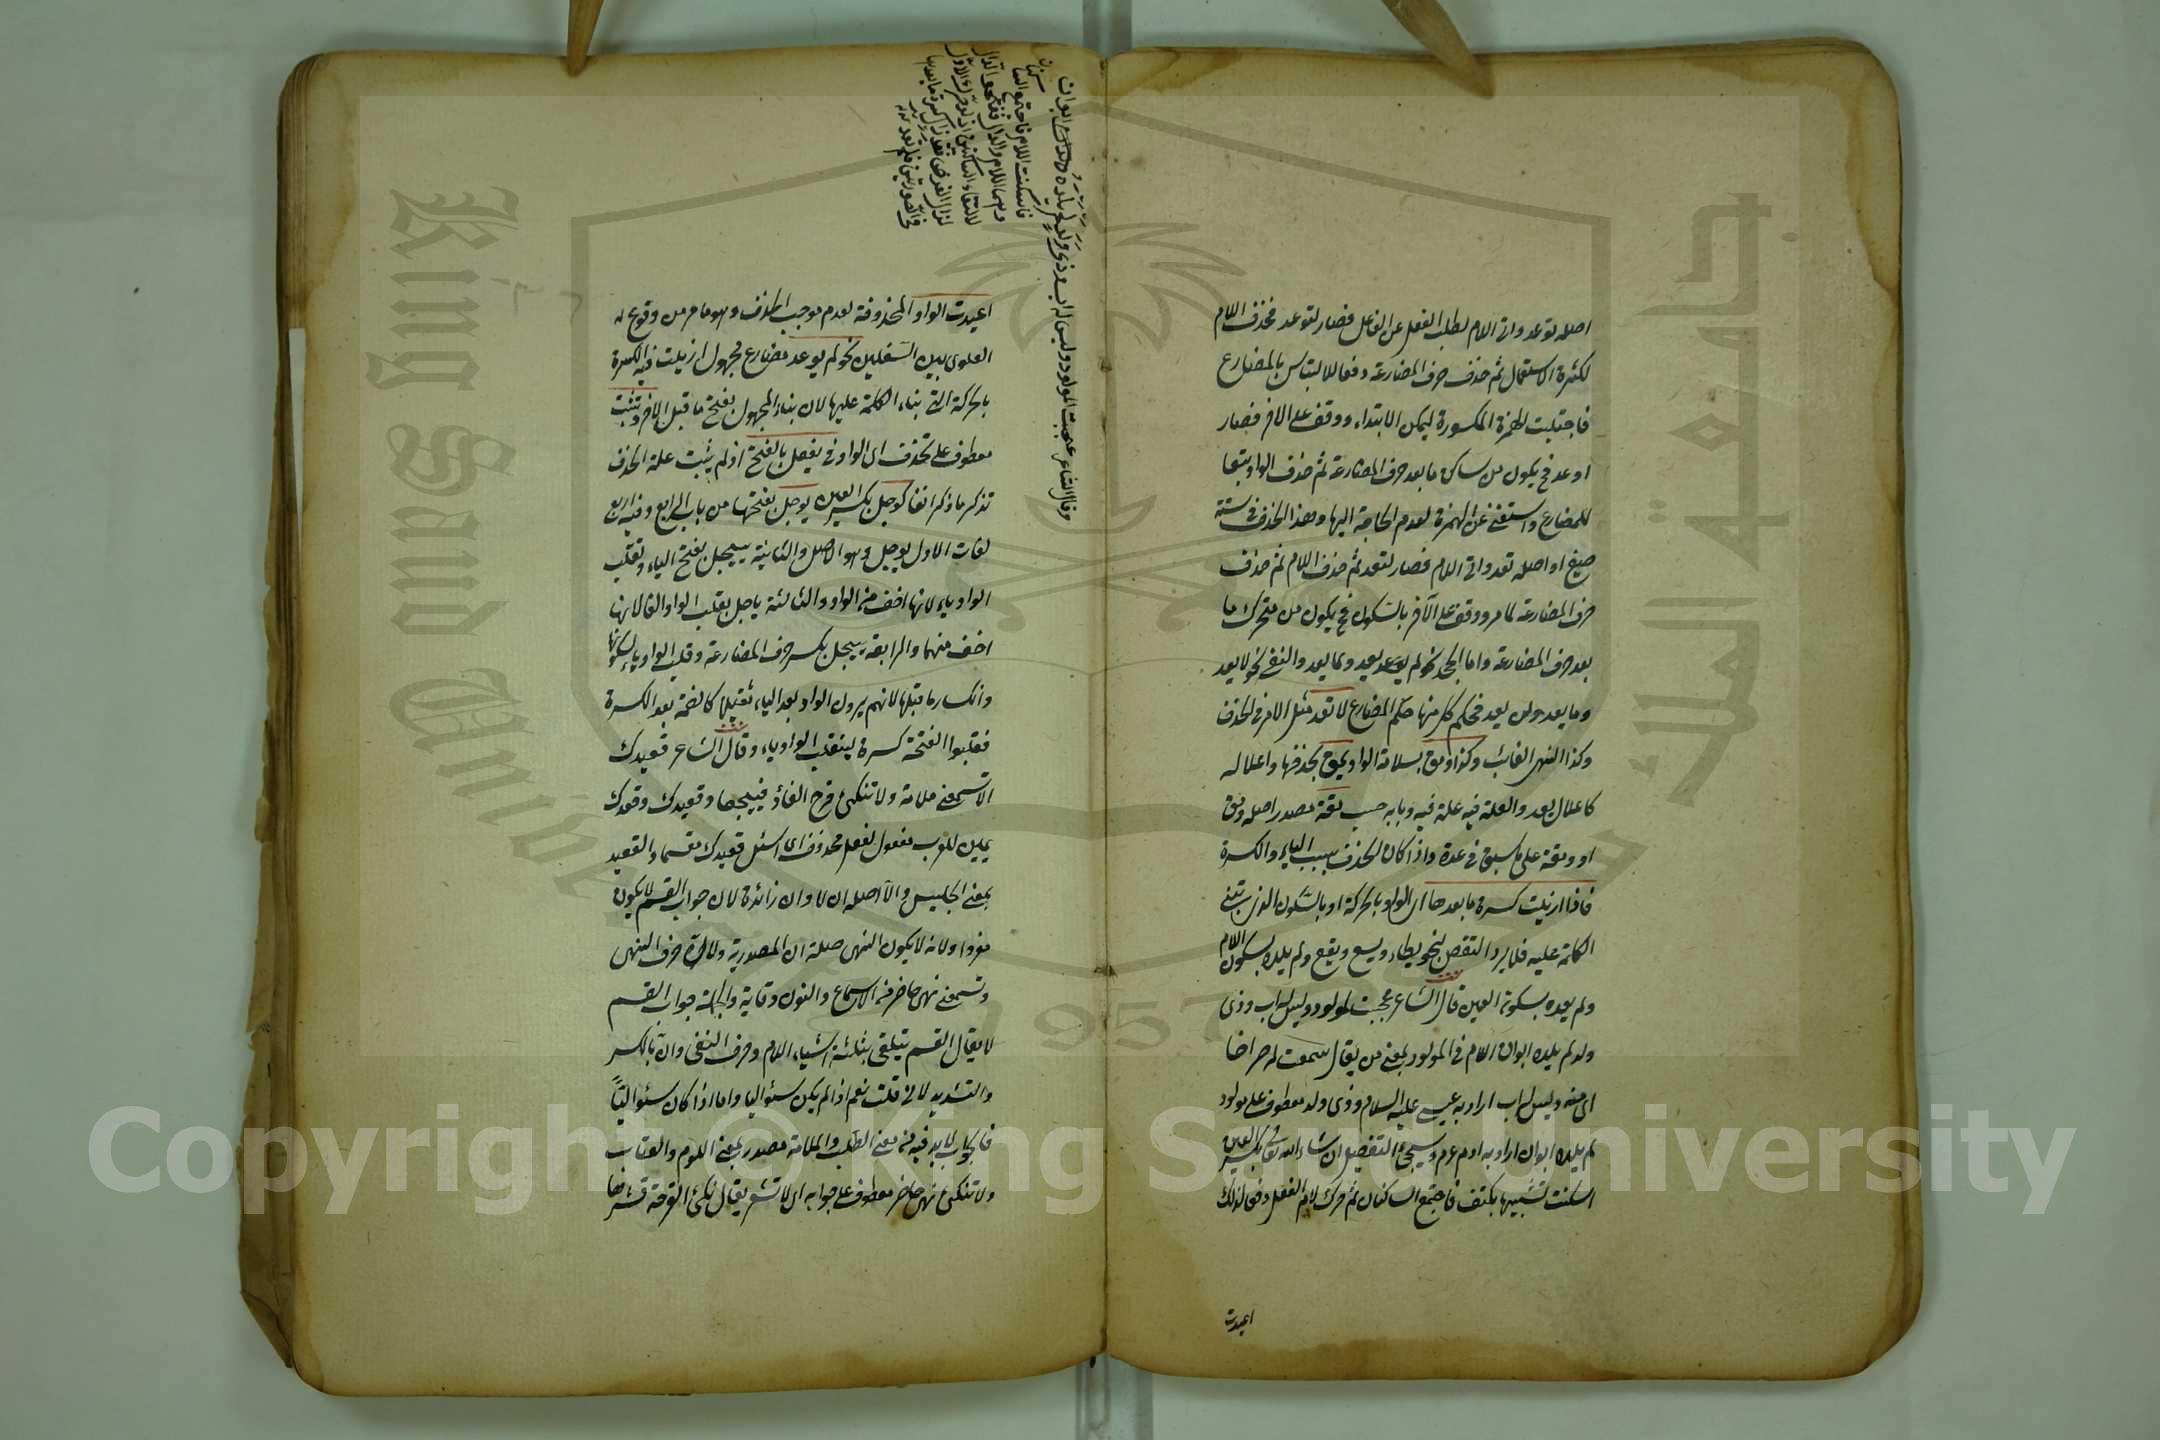 اصله توعد وزاد اللام لطلب الفعل عن الفاعل فصار لتوعد فحذف اللام
لكثرة الاستعمال ثم حذف حرف المضارعة دفعا للالتباس بالمضارع
فاجتلبت الهمزة المكسورة ليمكن الابتداء ووقف على الاخر فصار
اوعد فح يكون من ساكن ما بعد حرف المضارعة ثم حذف الواو تبعا
للمضارع واستغنى عن الهمزة لعدم الحاجة اليها وهذا الحذف في ستة
صيغ او اصله تعد واتى اللام فصار لتعد ثم حذف اللام ثم حذف
حرف المضارعة لما مر ووقف على الآخر بالسكون فح يكون من متحرك ما
بعد حرف المضارعة واما الجحد نحو لم يعد ولما يعد والنفى نحو لا يعد
وما يعد ولن يعد فحكم كل منها حكم المضارع لا تعد مثل الامر في الحذف
وكذا النهى الغائب وكذا ومق بسلامة الواو يمق بحذفها واعلاله
كاعلال يعد والعلة فيه علة فيه وبابه حسب مقة مصدر اصله ومق
او ومقة على ما سبق في عدة واذا كان الحذف بسبب الياء والكسرة
فاذا ازيلت كسرة ما بعدها اى الواو بالحركة او بالسكون الذى تبتنى
الكلمة عليه فلا يرد النقض بنحو يطاء ويسع ويقع ولم يلده بسكون اللام
ولم يعده بسكون العين قال الشاعر عجبت لمولود وليس له اب وذى
ولد لم يلده ابوان اللام في المولود بمعنى من يقال سمعت له صراخا
اى منه وليس له اب اراد به عيسى عليه السلام وذى ولد معطوف على مولود
لم يلده ابوان اراد به ادم عم وسيجئ التفصيل ان شاء الله تعالى بكسر العين
اسكنت تشبيها بكتف فاجتمع الساكنان ثم حرك لام الفعل دفعا لذلك
اعيدت
وقال الشاعر عجبت لمولود وليس له اب وذى ولد لم يلده ابوان
فاسكنت اللام فاجتمع الساكنان
وهما اللام والدال ففتحوا الدال
لالتقاء الساكنين
اعيدت الواو المحذوفة لعدم موجب الحذف وهو ما مر من وقوع
العلوى بين السفليين نحو لم يوعد مضارع مجهول ازيلت فيه الكسرة
بالحركة التى بناء الكلمة عليها لان بناء المجهول بفتح ما قبل الاخر وتثبت
معطوف على تحذف اى الواو في يفعل بالفتح اذ لم يثبت علة الحذف
تذكر ما ذكر انفا كوجل بكسر العين يوجل بفتحها من باب الرابع وفيه اربع
لغات الاول يوجل وهو الاصل والثانية ييجل بفتح الياء وتقلب
الواو ياء لانها اخف من الواو والثالثة ياجل بقلب الواو الفا لانها
اخف منهما والرابعة ييجل بكسر حرف المضارعة وقلب الواو ياء لسكونها
وانكسار ما قبلها لانهم يرون الواو بعد الياء ثقيلا كالضمة بعد الكسرة
فقلبوا الفتحة كسرة لينقلب الواو ياء وقال الشاعر قعيدك
الا تسمعنى ملامة ولا تنكئى قرح الفؤاد فييجعا وقعيدك وقعدك
يمين للعرب مفعول لفعل محذوف اى اسئل قعيدك مقسما والقعيد
بمعنى الجليس والا اصله ان لا وان زائدة لان جواب القسم لا يكون
مفردا ولانه لا يكون النهى صلة ان المصدرية ولا حرف النهى
وتسمعنى نهى حاضر من الاسماع والنون وقاية والجملة جواب القسم
لا يقال القسم يتلقى بثلثة اشياء اللام وحرف النفى وان بالكسر
والتشديد لانى قلت نعم اذا لم يكن سئواليا واما اذا كان سئواليا
فالجواب لا بد فيه من معنى الطلب والملامة مصدر بمعنى اللوم والعتاب
ولا تنكئى نهى حاضر معطوف على جوابه اى لا تقشر يقال نكئ القرحة قشرها